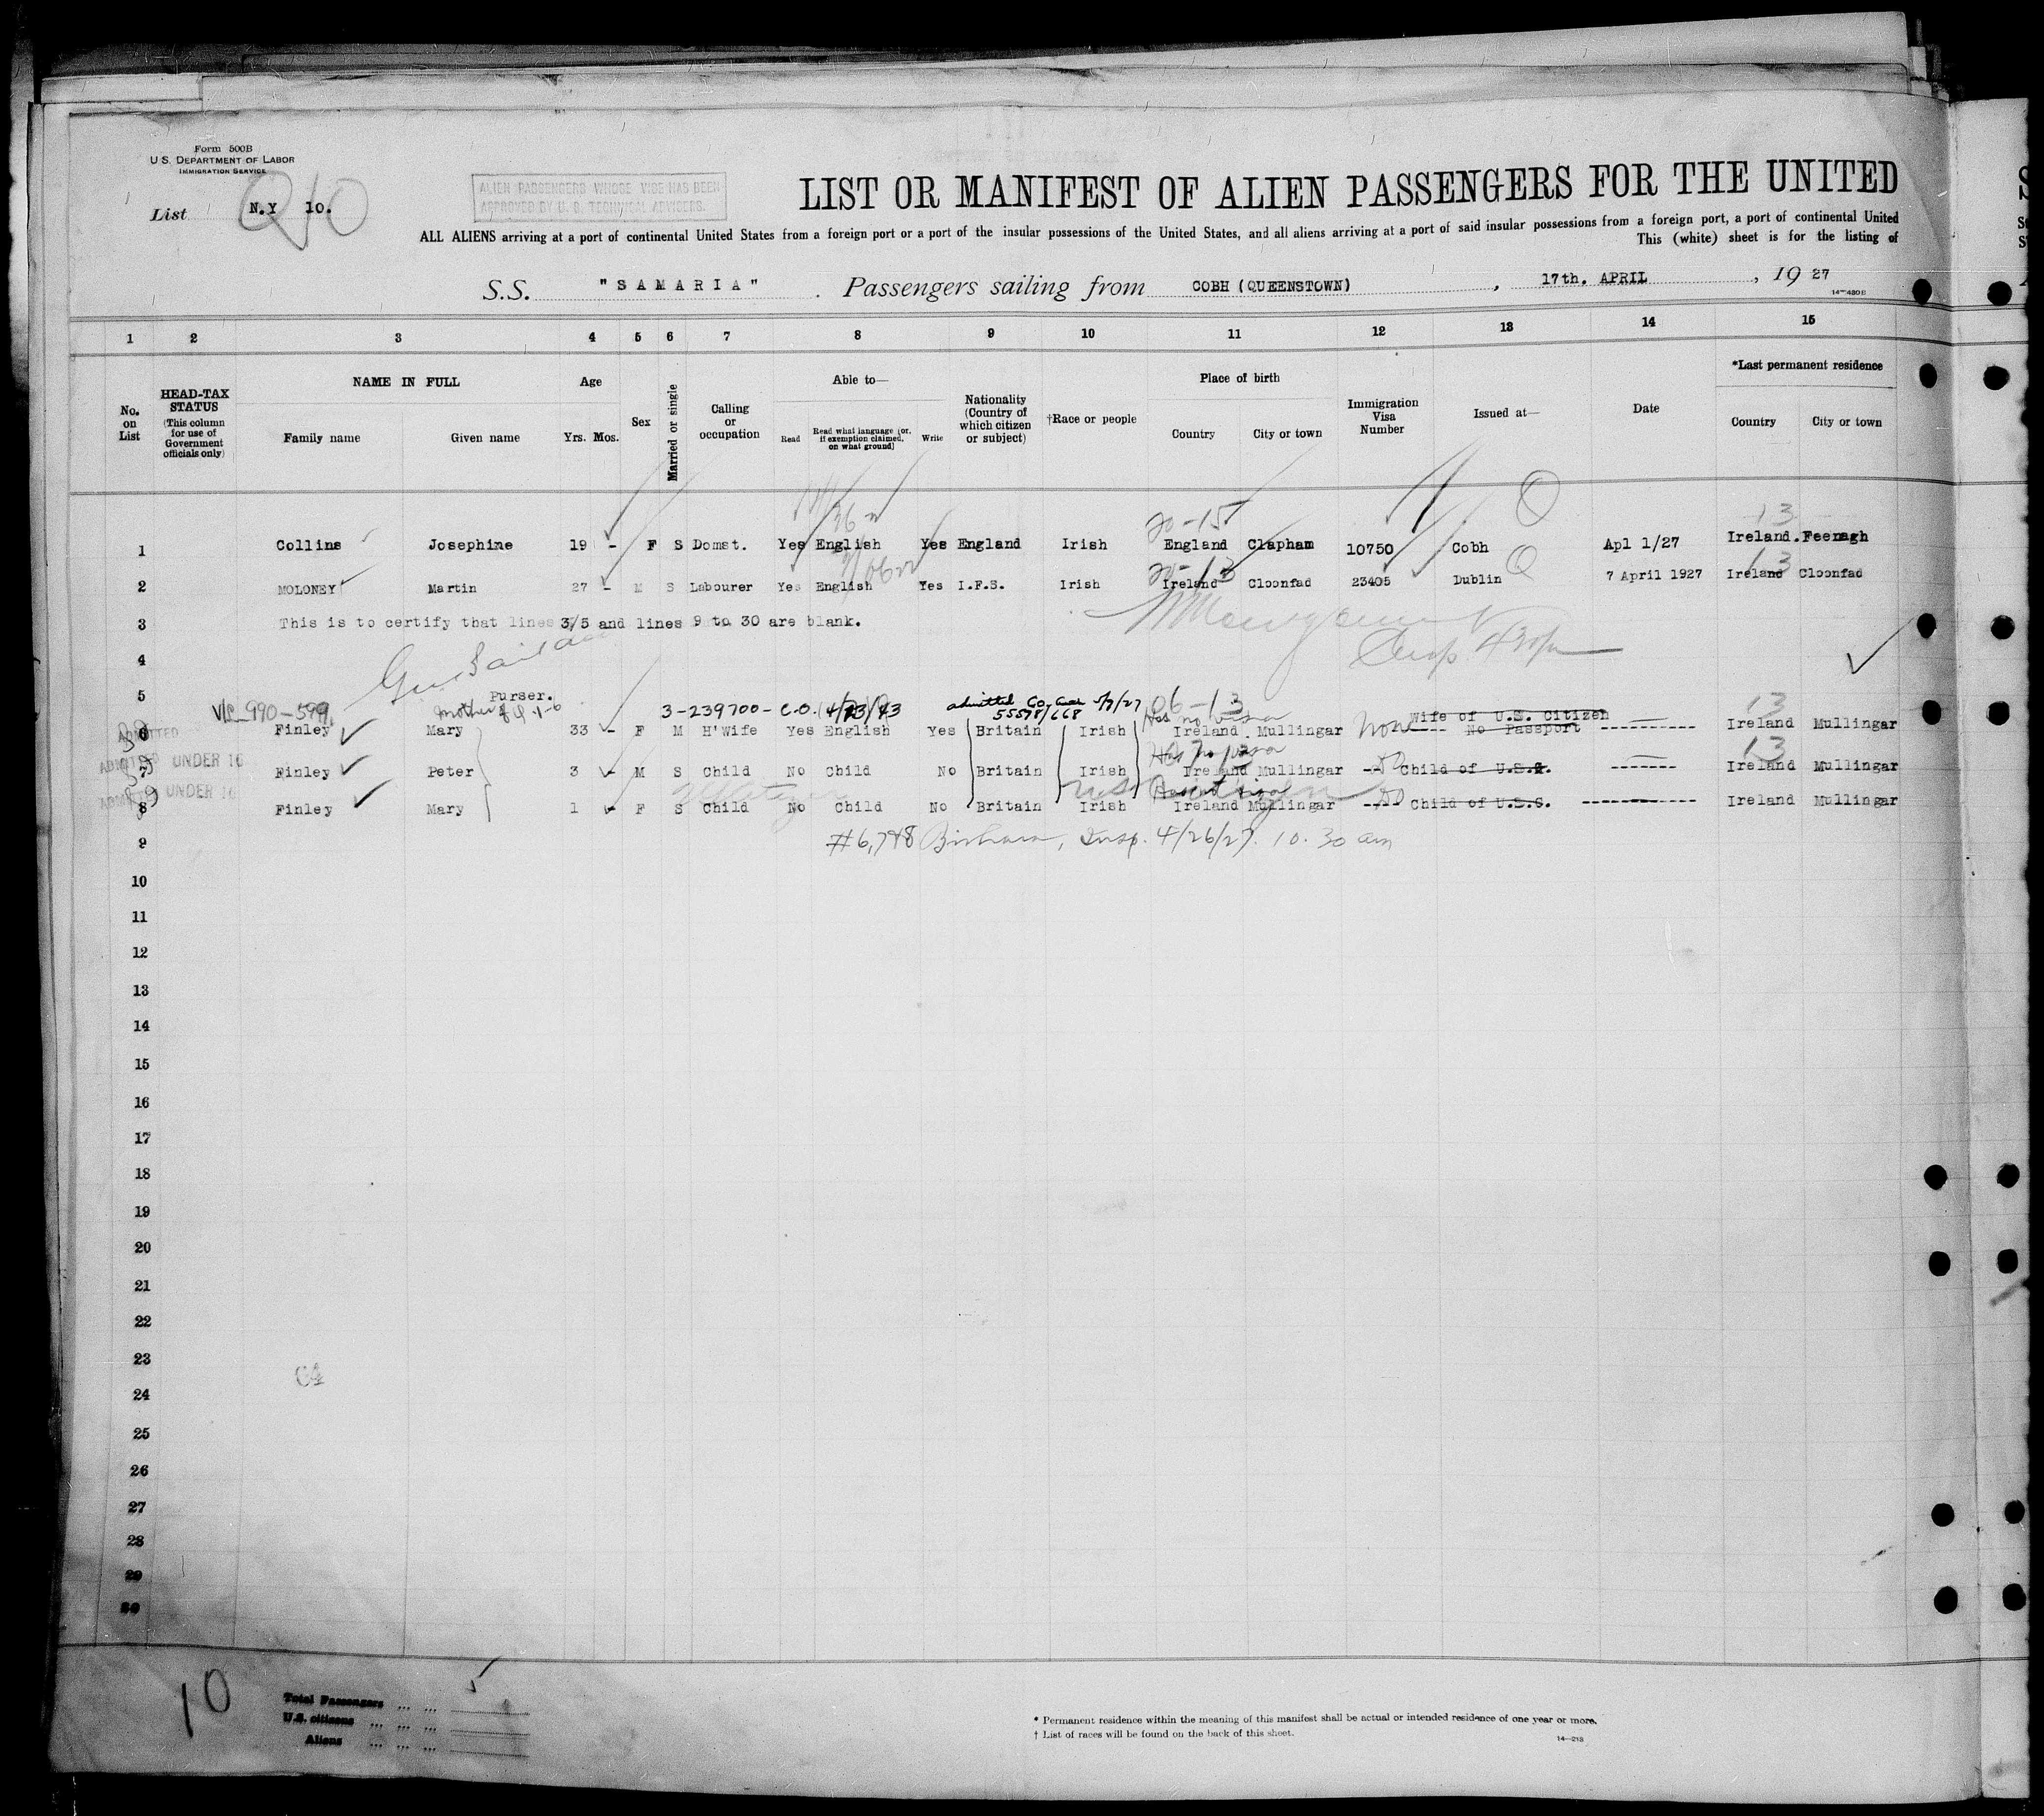 Form 500B
U.S. DEPARTMENT OF LABOR
IMMIGRATION SERVICE
List N.Y 10.
ALIEN PASSENGERS WHOSE VISE HAS BEEN
APPROVED BY U. S. TECHNICAL ADVISERS.
LIST OR MANIFEST OF ALIEN PASSENGERS FOR THE UNITED
ALL ALIENS arriving at a port of continental United States from a foreign port or a port of the insular possessions of the United States, and all aliens arriving at a port of said insular possessions from a foreign port, a port of continental United
This (white) sheet is for the listing of
S.S. "SAMARIA" . Passengers sailing from COBH (QUEENSTOWN) , 17th. APRIL , 19 27
14—480B
1 2 3 4 5 6 7 8 9 10 11 12 13 14 15
No. on List
HEAD-TAX STATUS (This column for use of Government officials only)
NAME IN FULL
Family name Given name
Age
Yrs. Mos.
Sex
Married or single
Calling or occupation
Able to—
Read Read what language [or, if exemption claimed, on what ground] Write
Nationality (Country of which citizen or subject)
†Race or people
Place of birth
Country City or town
Immigration Visa Number
Issued at—
Date
*Last permanent residence
Country City or town
20-15 13
1 Collins Josephine 19 - F S Domst. Yes English Yes England Irish England Clapham 10750 Cobh Apl 1/27 Ireland. Feenagh
20-13 13
2 MOLONEY Martin 27 - M S Labourer Yes English Yes I.F.S. Irish Ireland Cloonfad 23405 Dublin 7 April 1927 Ireland Cloonfad
3 This is to certify that lines 3/5 and lines 9 to 30 are blank.
4
5 Purser.
V/L 990-599 3-239700-C.O. 4/23/43 admitted 5/9/27 06-13 13
55598/668 Has no visa
6 Finley Mary 33 - F M H'Wife Yes English Yes Britain Irish Ireland Mullingar Wife of U.S. Citizen No Passport ---------- Ireland Mullingar
ADMITTED
Has no visa 13
7 Finley Peter 3 - M S Child No Child No Britain Irish Ireland Mullingar -- Child of U.S.C. ------- Ireland Mullingar
ADMITTED UNDER 16
8 Finley Mary 1 - F S Child No Child No Britain Irish Ireland Mullingar -- Child of U.S.C. ------------ Ireland Mullingar
ADMITTED UNDER 16
9 #6,7&8 Insp. 4/26/27. 10.30 am
10
11
12
13
14
15
16
17
18
19
20
21
22
23
24
25
26
27
28
29
30
10
Total Passengers ... ... 5
U.S. citizens ... ... ...
Aliens ... ... ...
* Permanent residence within the meaning of this manifest shall be actual or intended residence of one year or more.
† List of races will be found on the back of this sheet.
14—218